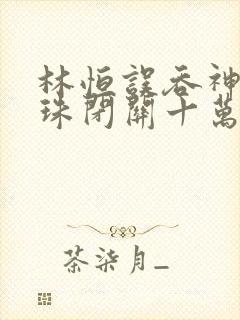 林恒誤吞神
珠閉關十萬
茶柒月_